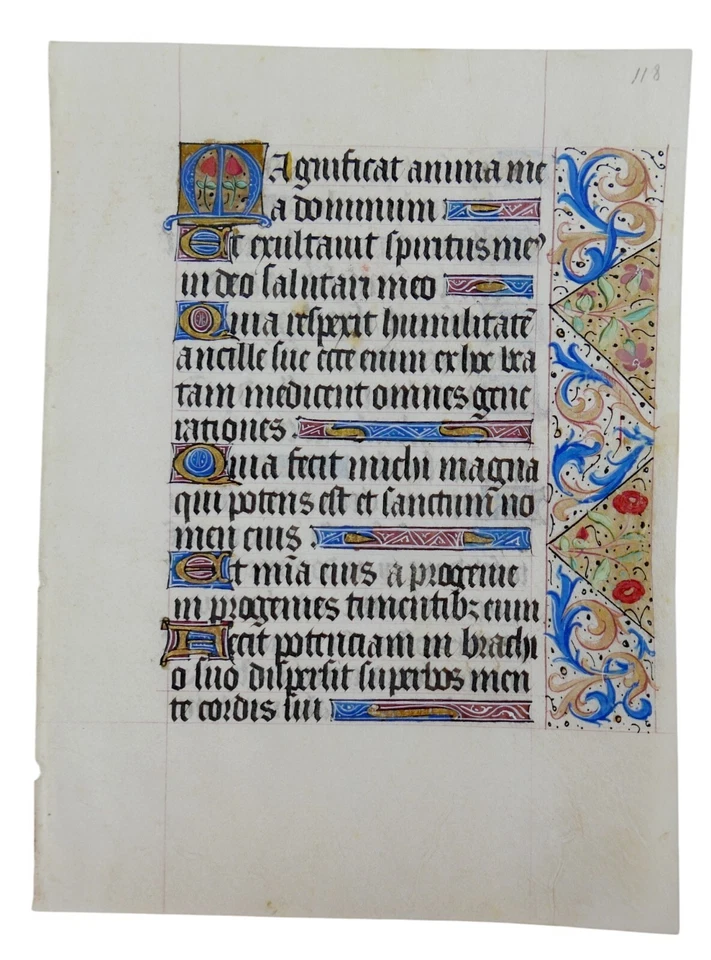 118
Magnificat anima me
a dominum
Et exultavit spiritus meꝰ
in deo salutari meo
Quia respexit humilitatē
ancille sue ecce enim ex hoc bea
tam me dicent omnes gene
rationes .
Quia fecit michi magna
qui potens est et sanctum̄ no
men eius .
Et mīa eius a progenie
in progenies timentibꝫ eum
Fecit potenciam in brachi
o suo dispersit superbos men
te cordis sui